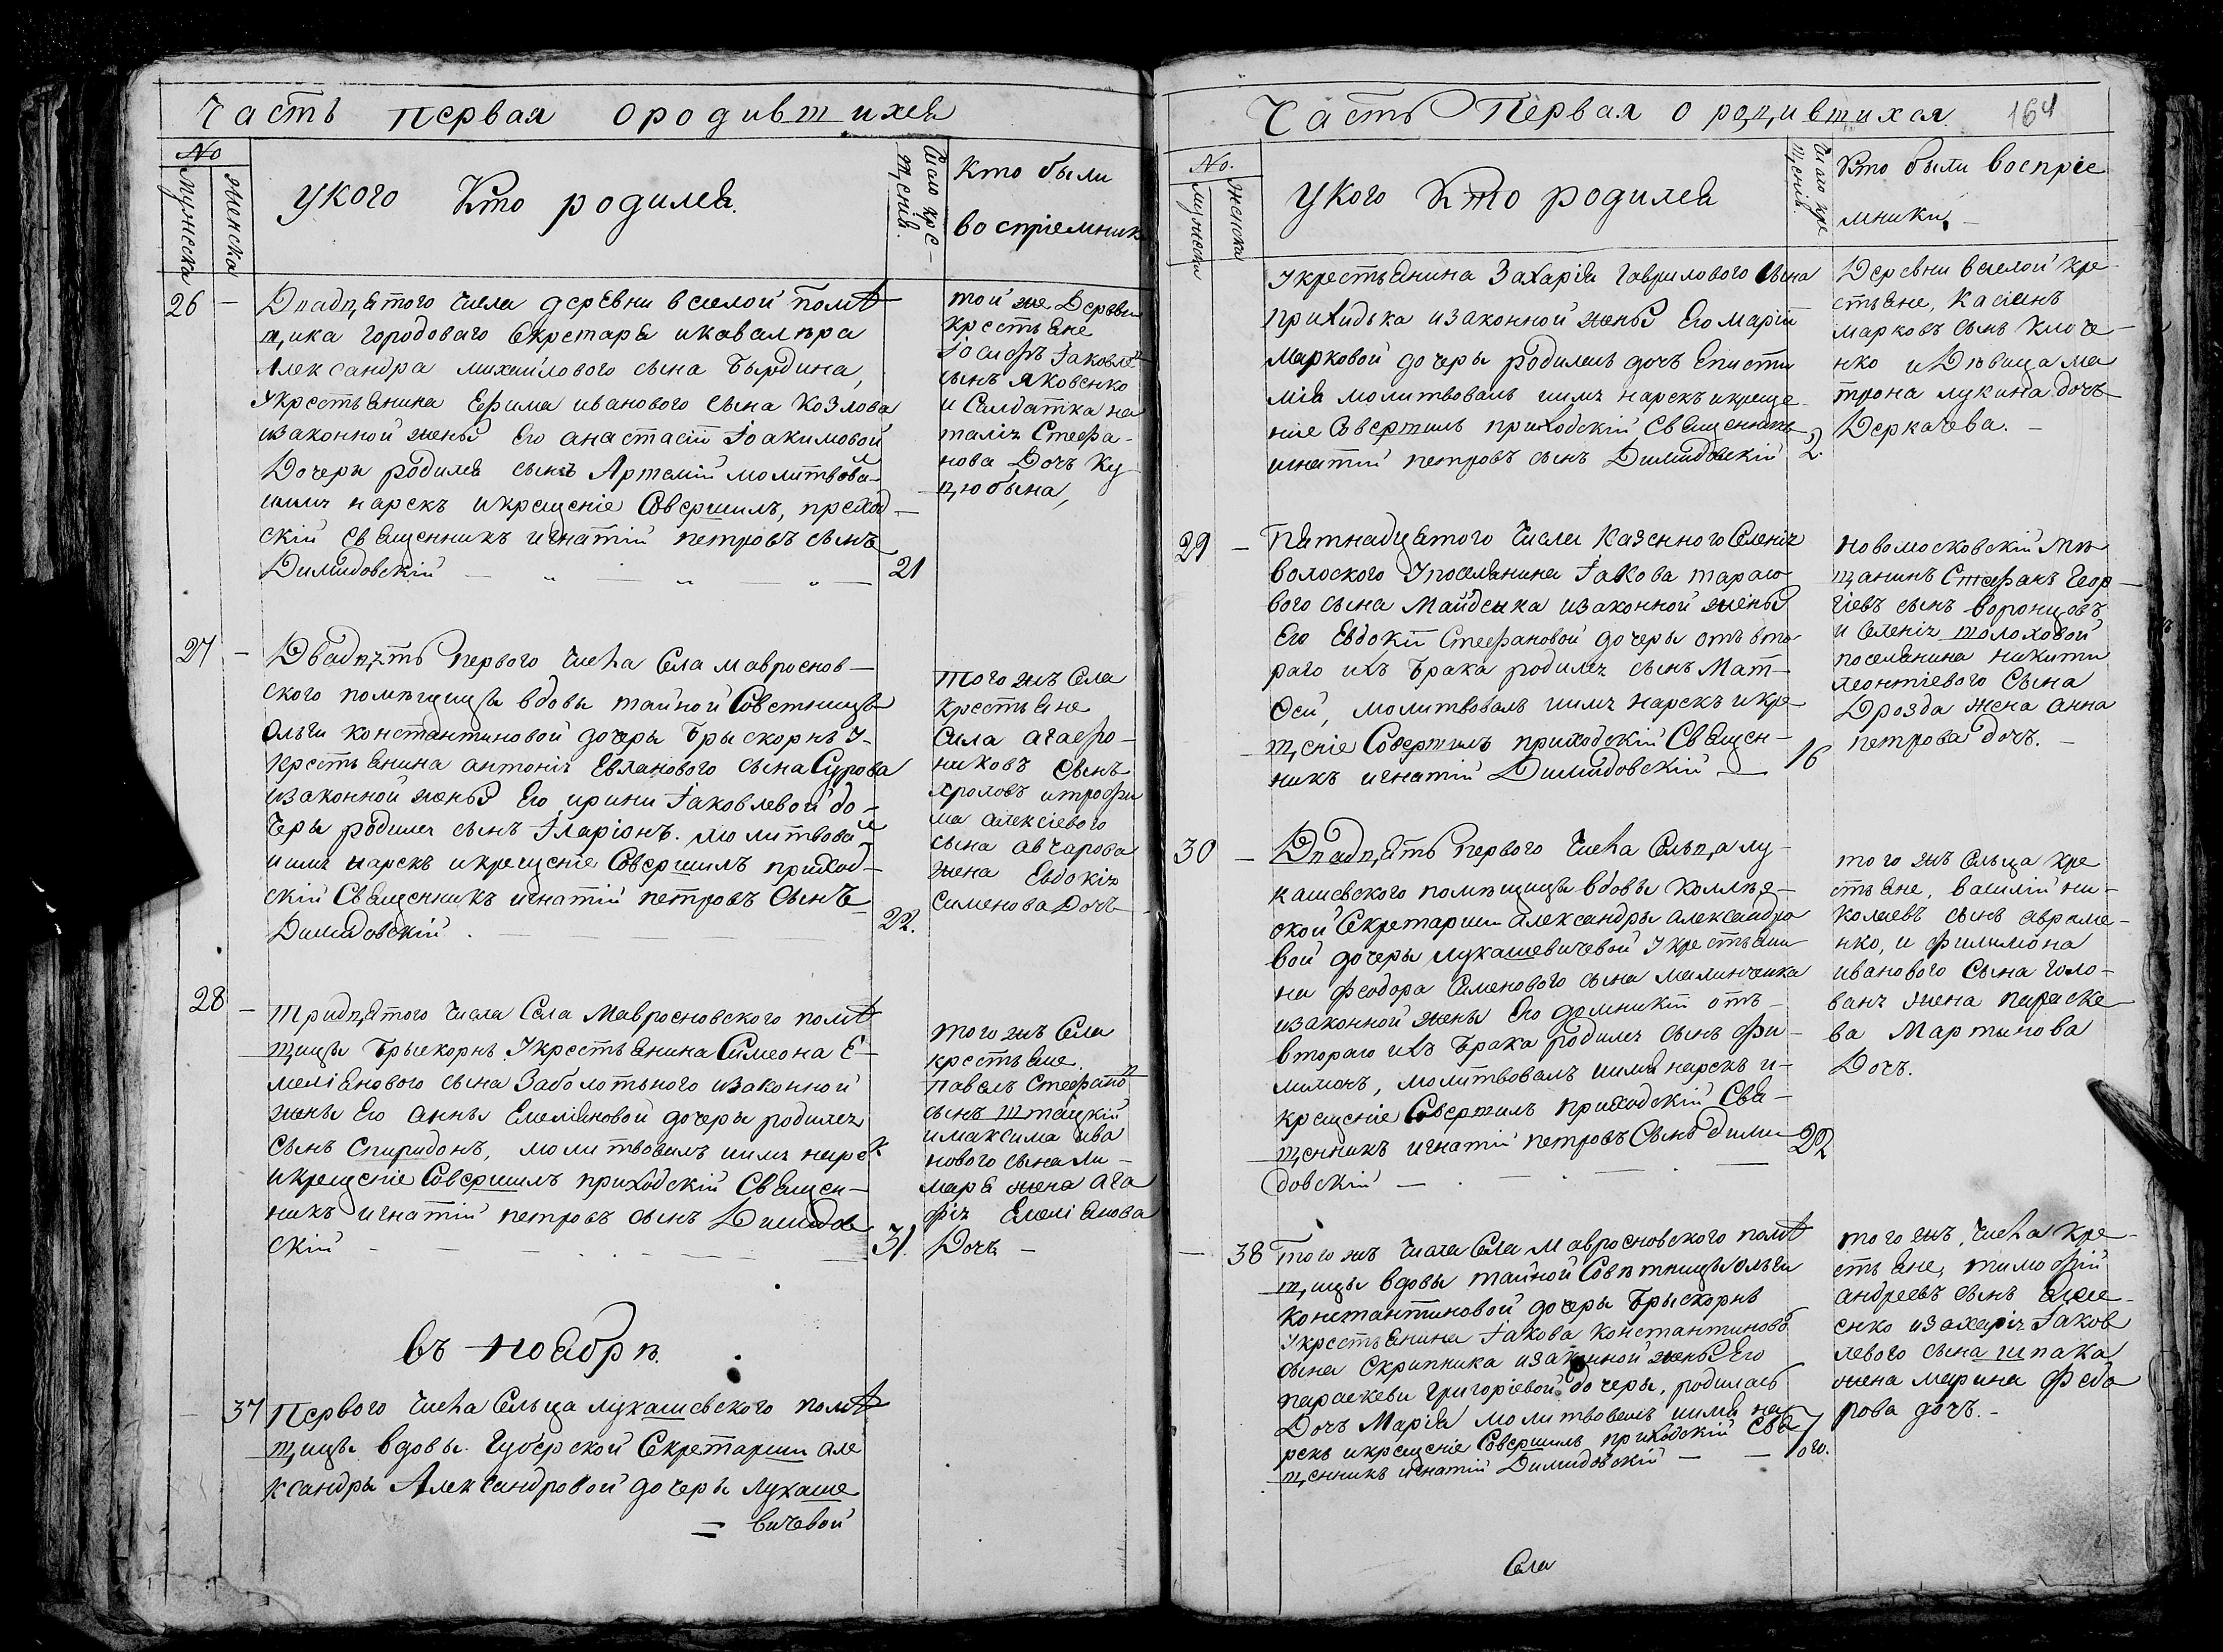 Часть первая ородившихся
No
Мужеска
Женска
укого Кто родился.
Число кре-
щенія.
Кто были
воспріемник
26 —
Двадцятого числа деревни веселой помѣ
щика городоваго Секретаря икавалѣра
Александра михайлового сына Бырдина,
укрестьянина Ефима иванового сына Козлова
изаконной жены Его анастасіи Іоакимовой
Дочеры родился сынъ Артемій молитвова
иимя нарекъ икрещеніе Совершилъ, приход-
скій священникъ игнатій петровъ сынъ
Димидовскій — 21
той же Деревни
крестьяне
Іосифъ Іаковле
сынъ яковенко
и Салдатка на
талія Стефа-
нова Дочъ Ку
цюбына,
27 —
Двадцять первого числа Села мавроснов-
ского помѣщицы вдовы тайной Совѣтницы
ольги константиновой дочеры Брыскорнъ у-
крестьянина антонія Евланового сына Сурова
изаконной жены Его ирини Іаковлевой до-
черы родился сынъ Іларіонъ. молитвовал
иимя нарекъ икрещеніе Совершилъ приход-
скій Священникъ игнатій петровъ Сынъ
Димидовскій. 22.
того жъ Села
крестьяне
Сила агафо-
никовъ Сынъ
Фроловъ итрофи
ма алексіевого
сына авчарова
жена Евдокія
Сименова Дочъ
28 —
тридцятого числа Села Мавросновского помѣ
щицы Брыскорнъ Укрестьянина Симеона Е-
меліянового сына Заболотьного изаконной
жены Его анны Емеліяновой дочеры родился
Сынъ Спиридонъ, молитвовалъ иимя нарек
икрещеніе Совершилъ приходскій Священ-
никъ игнатій петровъ сынъ Димидов
скій — 31.
того жъ Села
крестьяне
павелъ Стефано
сынъ
имаксима ива
нового сына ли-
маря жена ага
фія Емеліянова
Дочъ —
въ ноябрѣ.
37
Первого числа Сельца лукашевского помѣ
щицы вдовы Губерской Секретарши але
ксандры Александровой дочеры лукаше
= вичевой
Часть Первая о родившихся
164
No.
мужеска
женска
укого Кто родился
Число кре
щенія.
Кто были воспріе
мники. —
Укрестьянина Захарія Гаврилового Сына
Прихидька изаконной жены Его Маріи
Марковой дочеры родилась дочъ Еписти
мія молитвовалъ иимя нарекъ икреще-
ніе Совершилъ приходскій Священникъ
игнатій петровъ сынъ Димидовскій 2.
Деревни веселой кре
стьяне, Касіянъ
марковъ сынъ Клоче-
нко и Дѣвица ма
трона лукина дочъ
Деркачева. —
29 —
Пятнадцятого числа казенного Селенія
волоского Упоселянина Іакова тарасо-
вого сына Майденка изаконной жены
Его Евдокіи Стефановой дочеры отъ вто-
раго ихъ Брака родился сынъ Мат-
фей, молитвовалъ иимя нарекъ икре-
щеніе Совершилъ приходскій Священ-
никъ игнатій Димидовскій — 16
новомосковскій мѣ
щанинъ Стефанъ Геор-
гіевъ сынъ воронцовъ
и Селенія волоховой
поселянина никиты
леонтіевого Сына
Дрозда жена анна
петрова дочъ. —
30 —
Двадцять первого числа Сельца лу-
кашевского помѣщицы вдовы коллѣж-
ской Секретарши александры александро
вой дочеры лукашевичевой Укрестьяни
на феодора Сименового сына малинченка
изаконной жены Его домникіи отъ
втораго ихъ Брака родился сынъ фи-
лимонъ, молитвовалъ иимя нарекъ и-
крещеніе Совершилъ приходскій Свя-
щенникъ игнатій петровъ Сынъ дими 22
довскій —
того жъ Сельца кре
стьяне, василій ни-
колаевъ сынъ авраме-
нко, и филимона
иванового Сына голо-
ваня жена параске
ва Мартинова
Дочъ.
— 38
того жъ числа Села мавросновского помѣ
щицы вдовы тайной Совѣтницы ольги
константиновой дочеры Брыскорнъ
Укрестьянина Іакова константиново
сына Скрипника изаконной жены Его
параскеви григоріевой дочеры, родилась
Дочъ Марія молитвовалъ иимя на
рекъ икрещеніе Совершилъ приходскій Свя
щенникъ игнатій Димидовскій — 7 ого.
того жъ, числа кре-
стьяне, тимофій
андреевъ сынъ
енко изахарія Іаков
левого сына шпака
жена марина федо
рова дочъ. —
Села